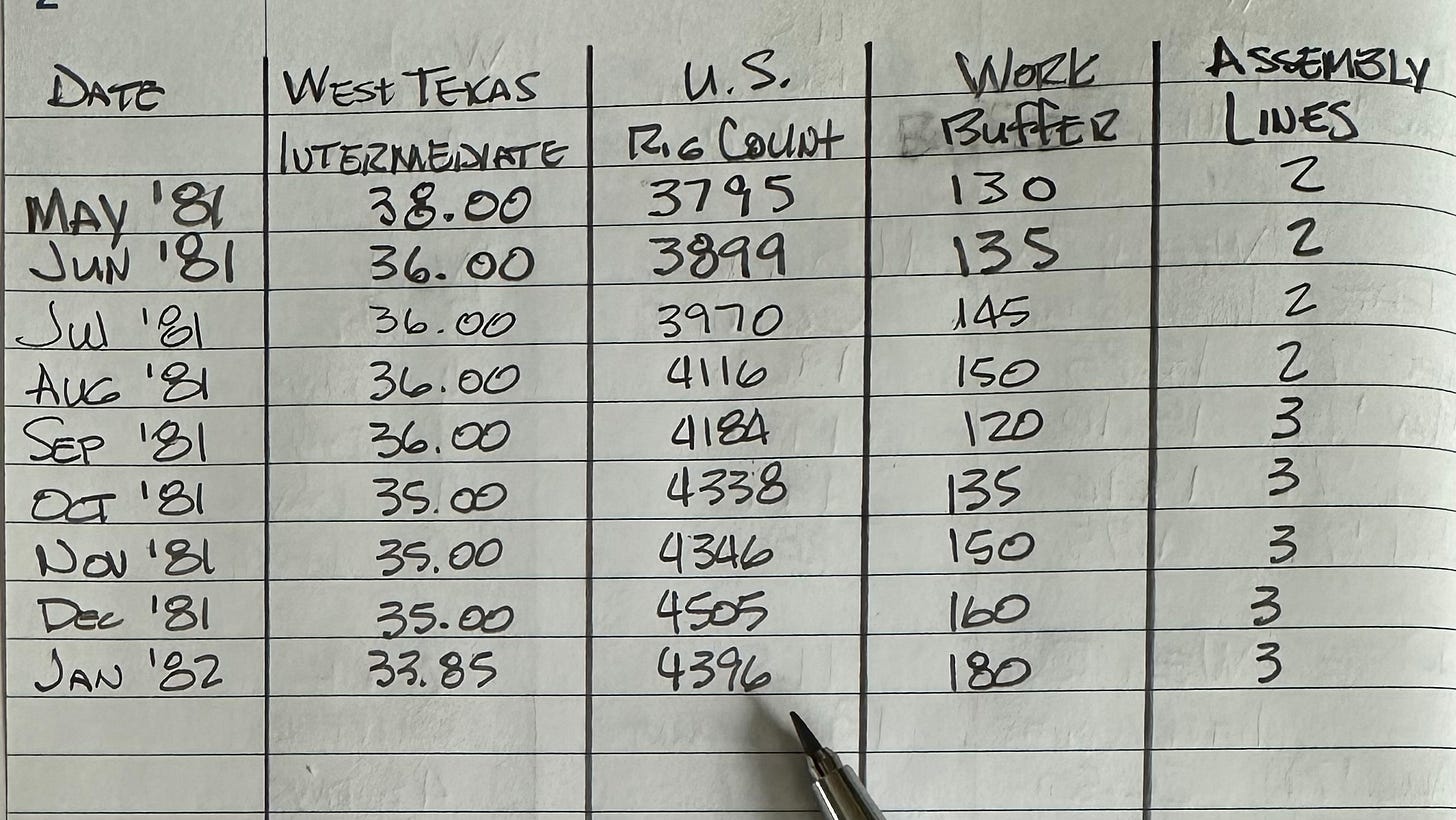 DATE WEST TEXAS U.S. WORK ASSEMBLY
INTERMEDIATE RIG COUNT BUFFER LINES
MAY '81 38.00 3795 130 2
JUN '81 36.00 3899 135 2
JUL '81 36.00 3970 145 2
AUG '81 36.00 4116 150 2
SEP '81 36.00 4184 120 3
OCT '81 35.00 4338 135 3
NOV '81 35.00 4346 150 3
DEC '81 35.00 4505 160 3
JAN '82 33.85 4396 180 3